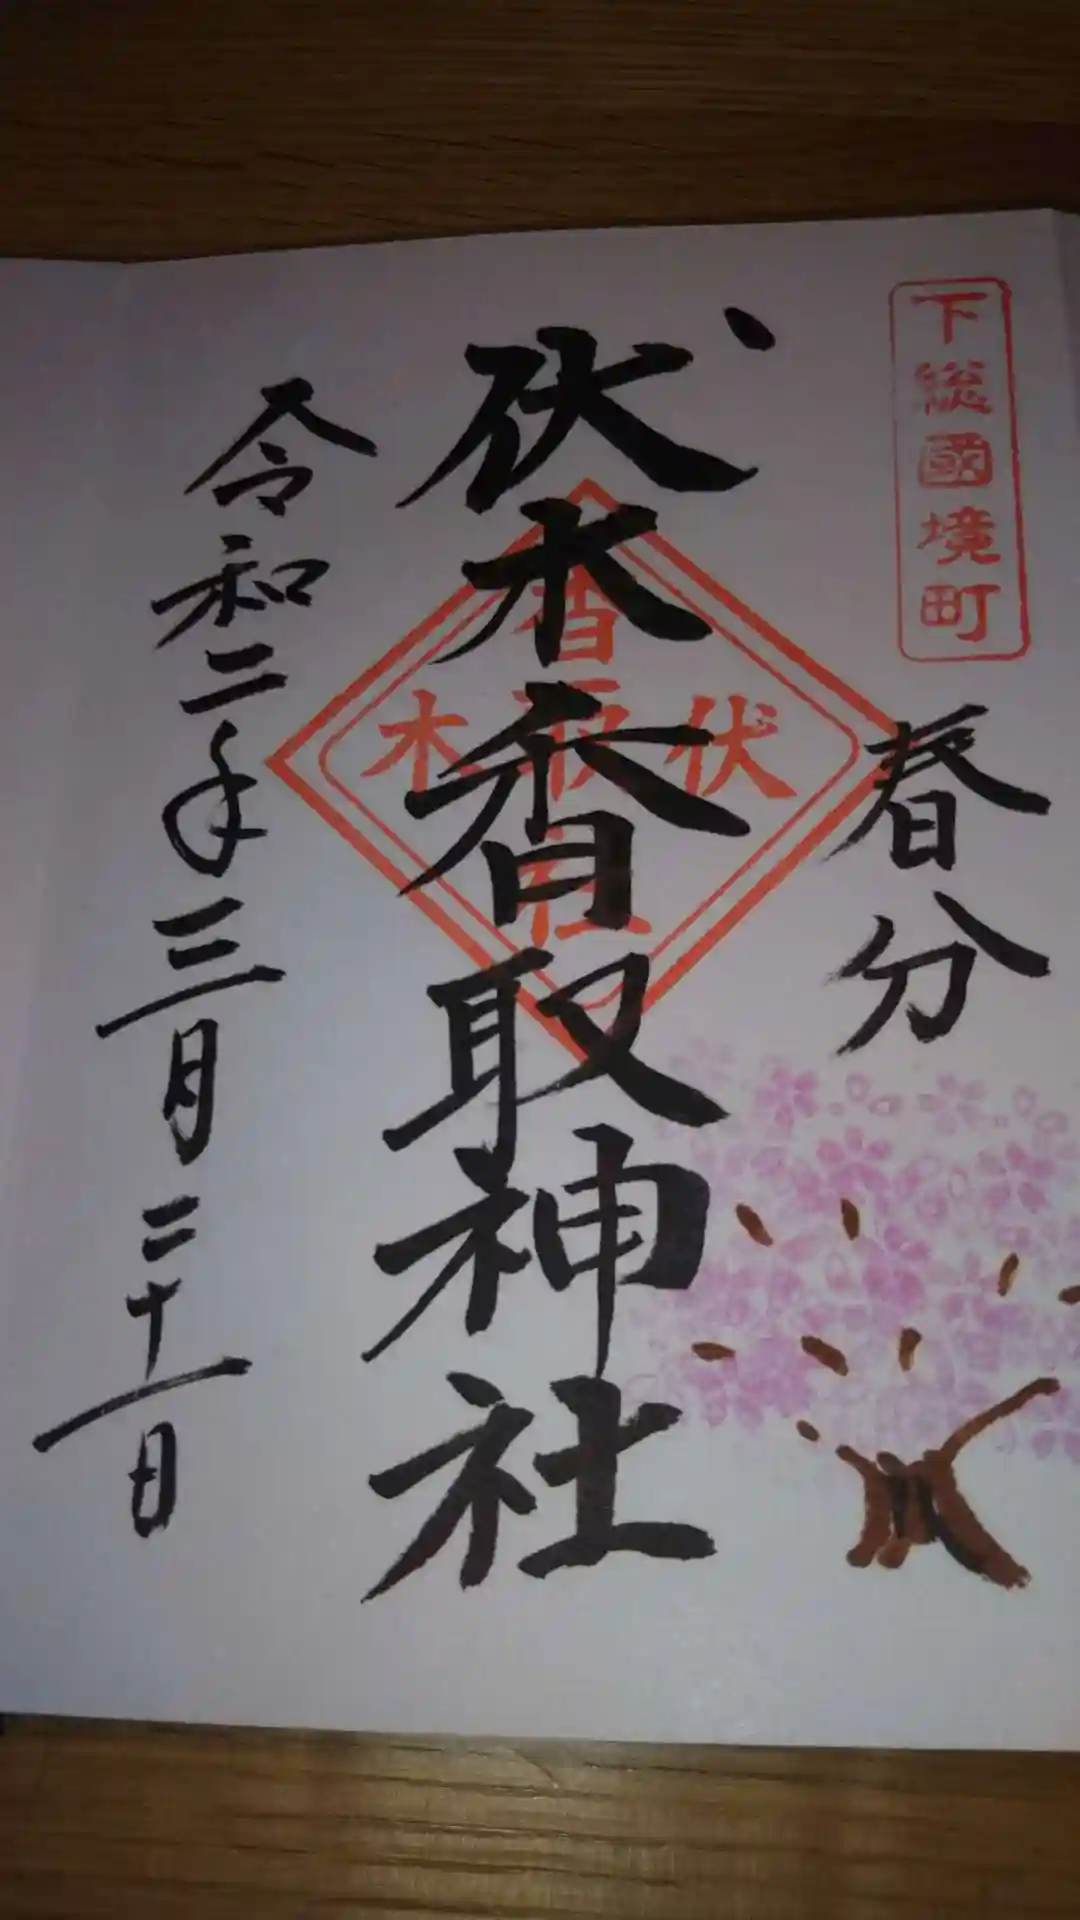 下総國境町
春分
伏木香取神社
伏木香取社
令和二年三月二十一日